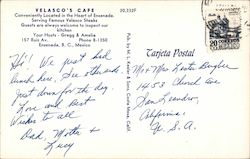 VELASCO'S CAFE
Conveniently Located in the Heart of Ensenada.
Serving Famous Velasco Steaks
Guests are always welcome to inspect our
kitchen
Your Hosts - Gregg & Amelia
157 Ruiz Av. Phone 8-1350
Ensenada, B. C., Mexico
Hi! We just had
lunch here. See other side.
Just down for the day.
Love and Best
Wishes to all
Dad, Mother &
Lucy
Tarjeta Postal
Mr & Mrs
1453 Church Ave
San Leandro,
California,
U. S. A.
20